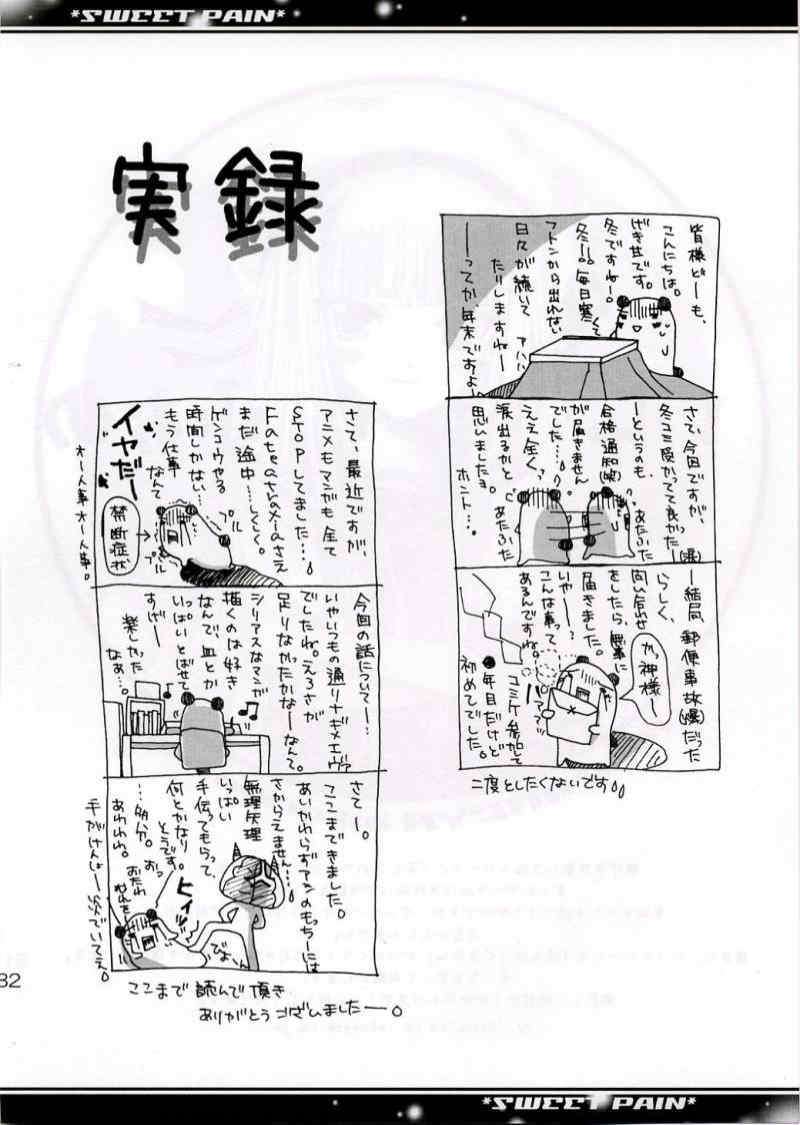 *SWEET PAIN*
実録
皆様どーも、
こんにちは。
げきせです。
冬ですねー。
冬ー。毎日寒くて
フトンから出れない
日々が続いて
たりしますねー
アハハ
ーってか年末ですよ
さて、今回ですが、
冬コミ受かってて良かったー(爆)
ーというのも、
合格通知(笑)
が届きません
でした…
ええ全く。
涙出るかと
思いましたョ。
ホント…。
あたふた
あたふた
ー結局、郵便事故(爆)だった
らしく、
問い合わせ
をしたら、無事に
届きました。
いやー…?
こんな事って
あるんですね。
コミケ参加して
年目だけど
初めてでした。
か、神様ー
二度としたくないです。
さて、最近ですが、
アニメもマンガも全て
STOPしてました…。
まだ途中…しくしく。
ゲンコウやる
時間しかない…
もう仕事
なんて
イヤだー
プル
プル
禁断症状
オー人事オー人事。
今回の話について…:
いやいつもの通りナギ×エヴァ
でしたね。えろさが
足りなかったかなーなんて。
シリアスなマンガ
描くのは好き
なんで、血とか
いっぱいとばせて
すげー
楽しかった
なぁ…。
さてー。
ここまできました。
あいかわらずアシのもっちーには
さからえません…。
無理矢理
いっぱい
手伝ってもらって、
何とかなり。
そうです。
…多分。
あわわわ。
ヒイィッ
びよーん
手がげんばー次でいてえ。
ここまで読んで頂き
ありがとうございましたー。
32
*SWEET PAIN*